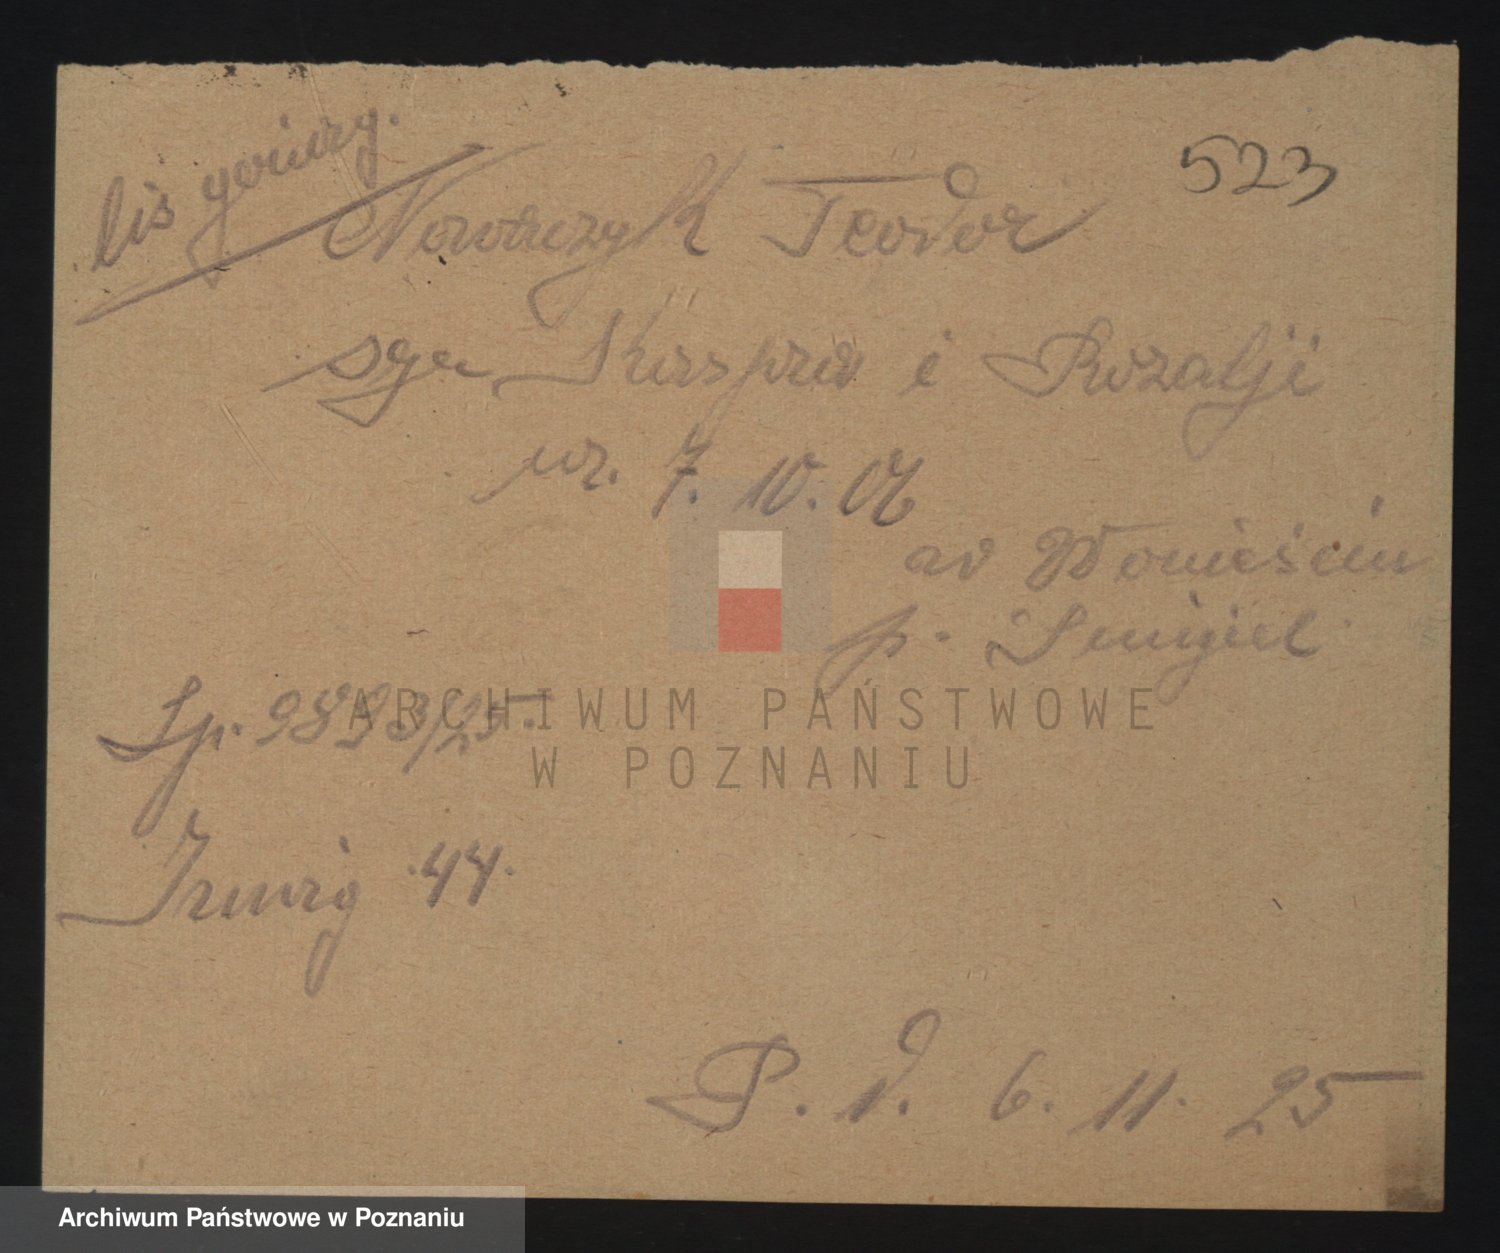 lis gończy.
523
Nowaczyk Teodor
syn Kaspra i Rozalji
ur. 7. 10. 06
w Wonieściu
p. Śmigiel
Lp. 9893/25.
44.
P. d. 6. 11. 25
ARCHIWUM PAŃSTWOWE
W POZNANIU
Archiwum Państwowe w Poznaniu